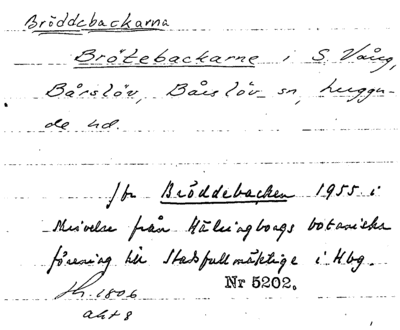 Bröddebackarna
Brötebackarne i S. Vång,
Bårslöv, Bårslöv sn, huggu-
de hd.
jfr Bröddebacken 1955 i
skrivelse från Hälsingborgs botaniska
förening till Stadsfullmäktige i Hbg.
Sk. 1806
Nr 5202.
akt 8